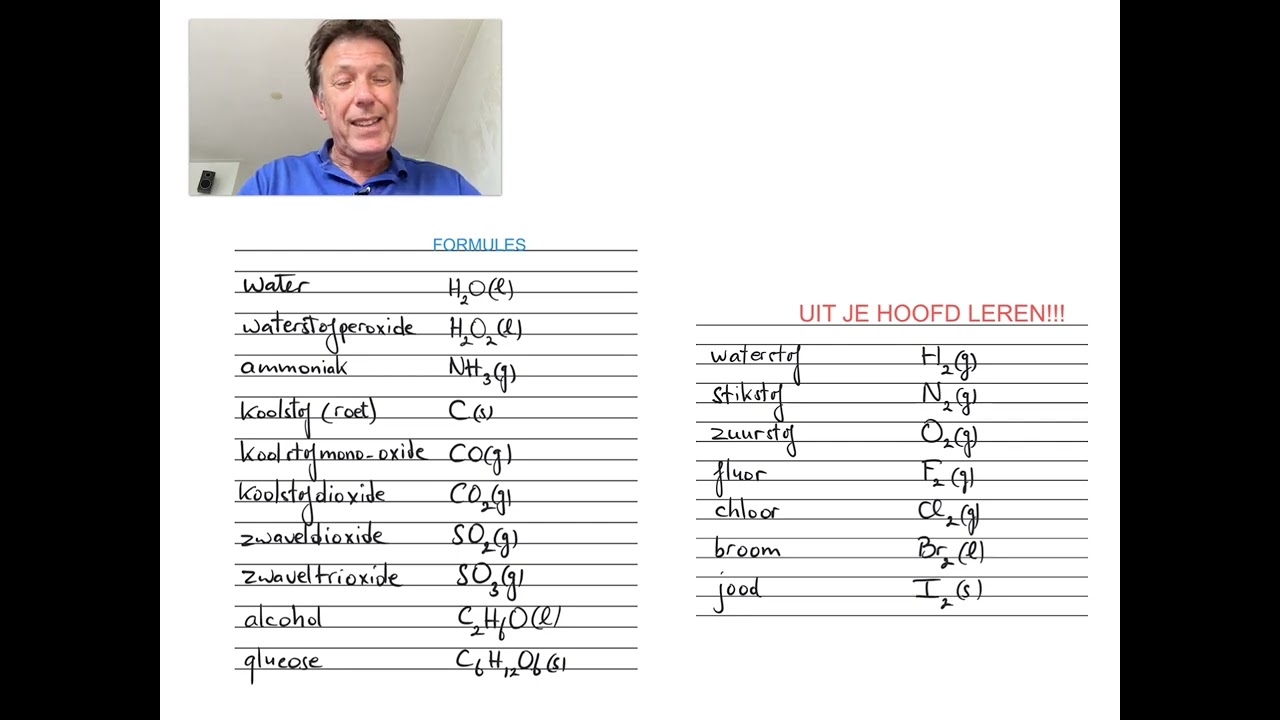 FORMULES
water H₂O(l)
waterstofperoxide H₂O₂(l)
ammoniak NH₃(g)
koolstof (roet) C(s)
koolstofmono-oxide CO(g)
koolstofdioxide CO₂(g)
zwaveldioxide SO₂(g)
zwaveltrioxide SO₃(g)
alcohol C₂H₆O(l)
glucose C₆H₁₂O₆(s)
UIT JE HOOFD LEREN!!!
waterstof H₂(g)
stikstof N₂(g)
zuurstof O₂(g)
fluor F₂(g)
chloor Cl₂(g)
broom Br₂(l)
jood I₂(s)